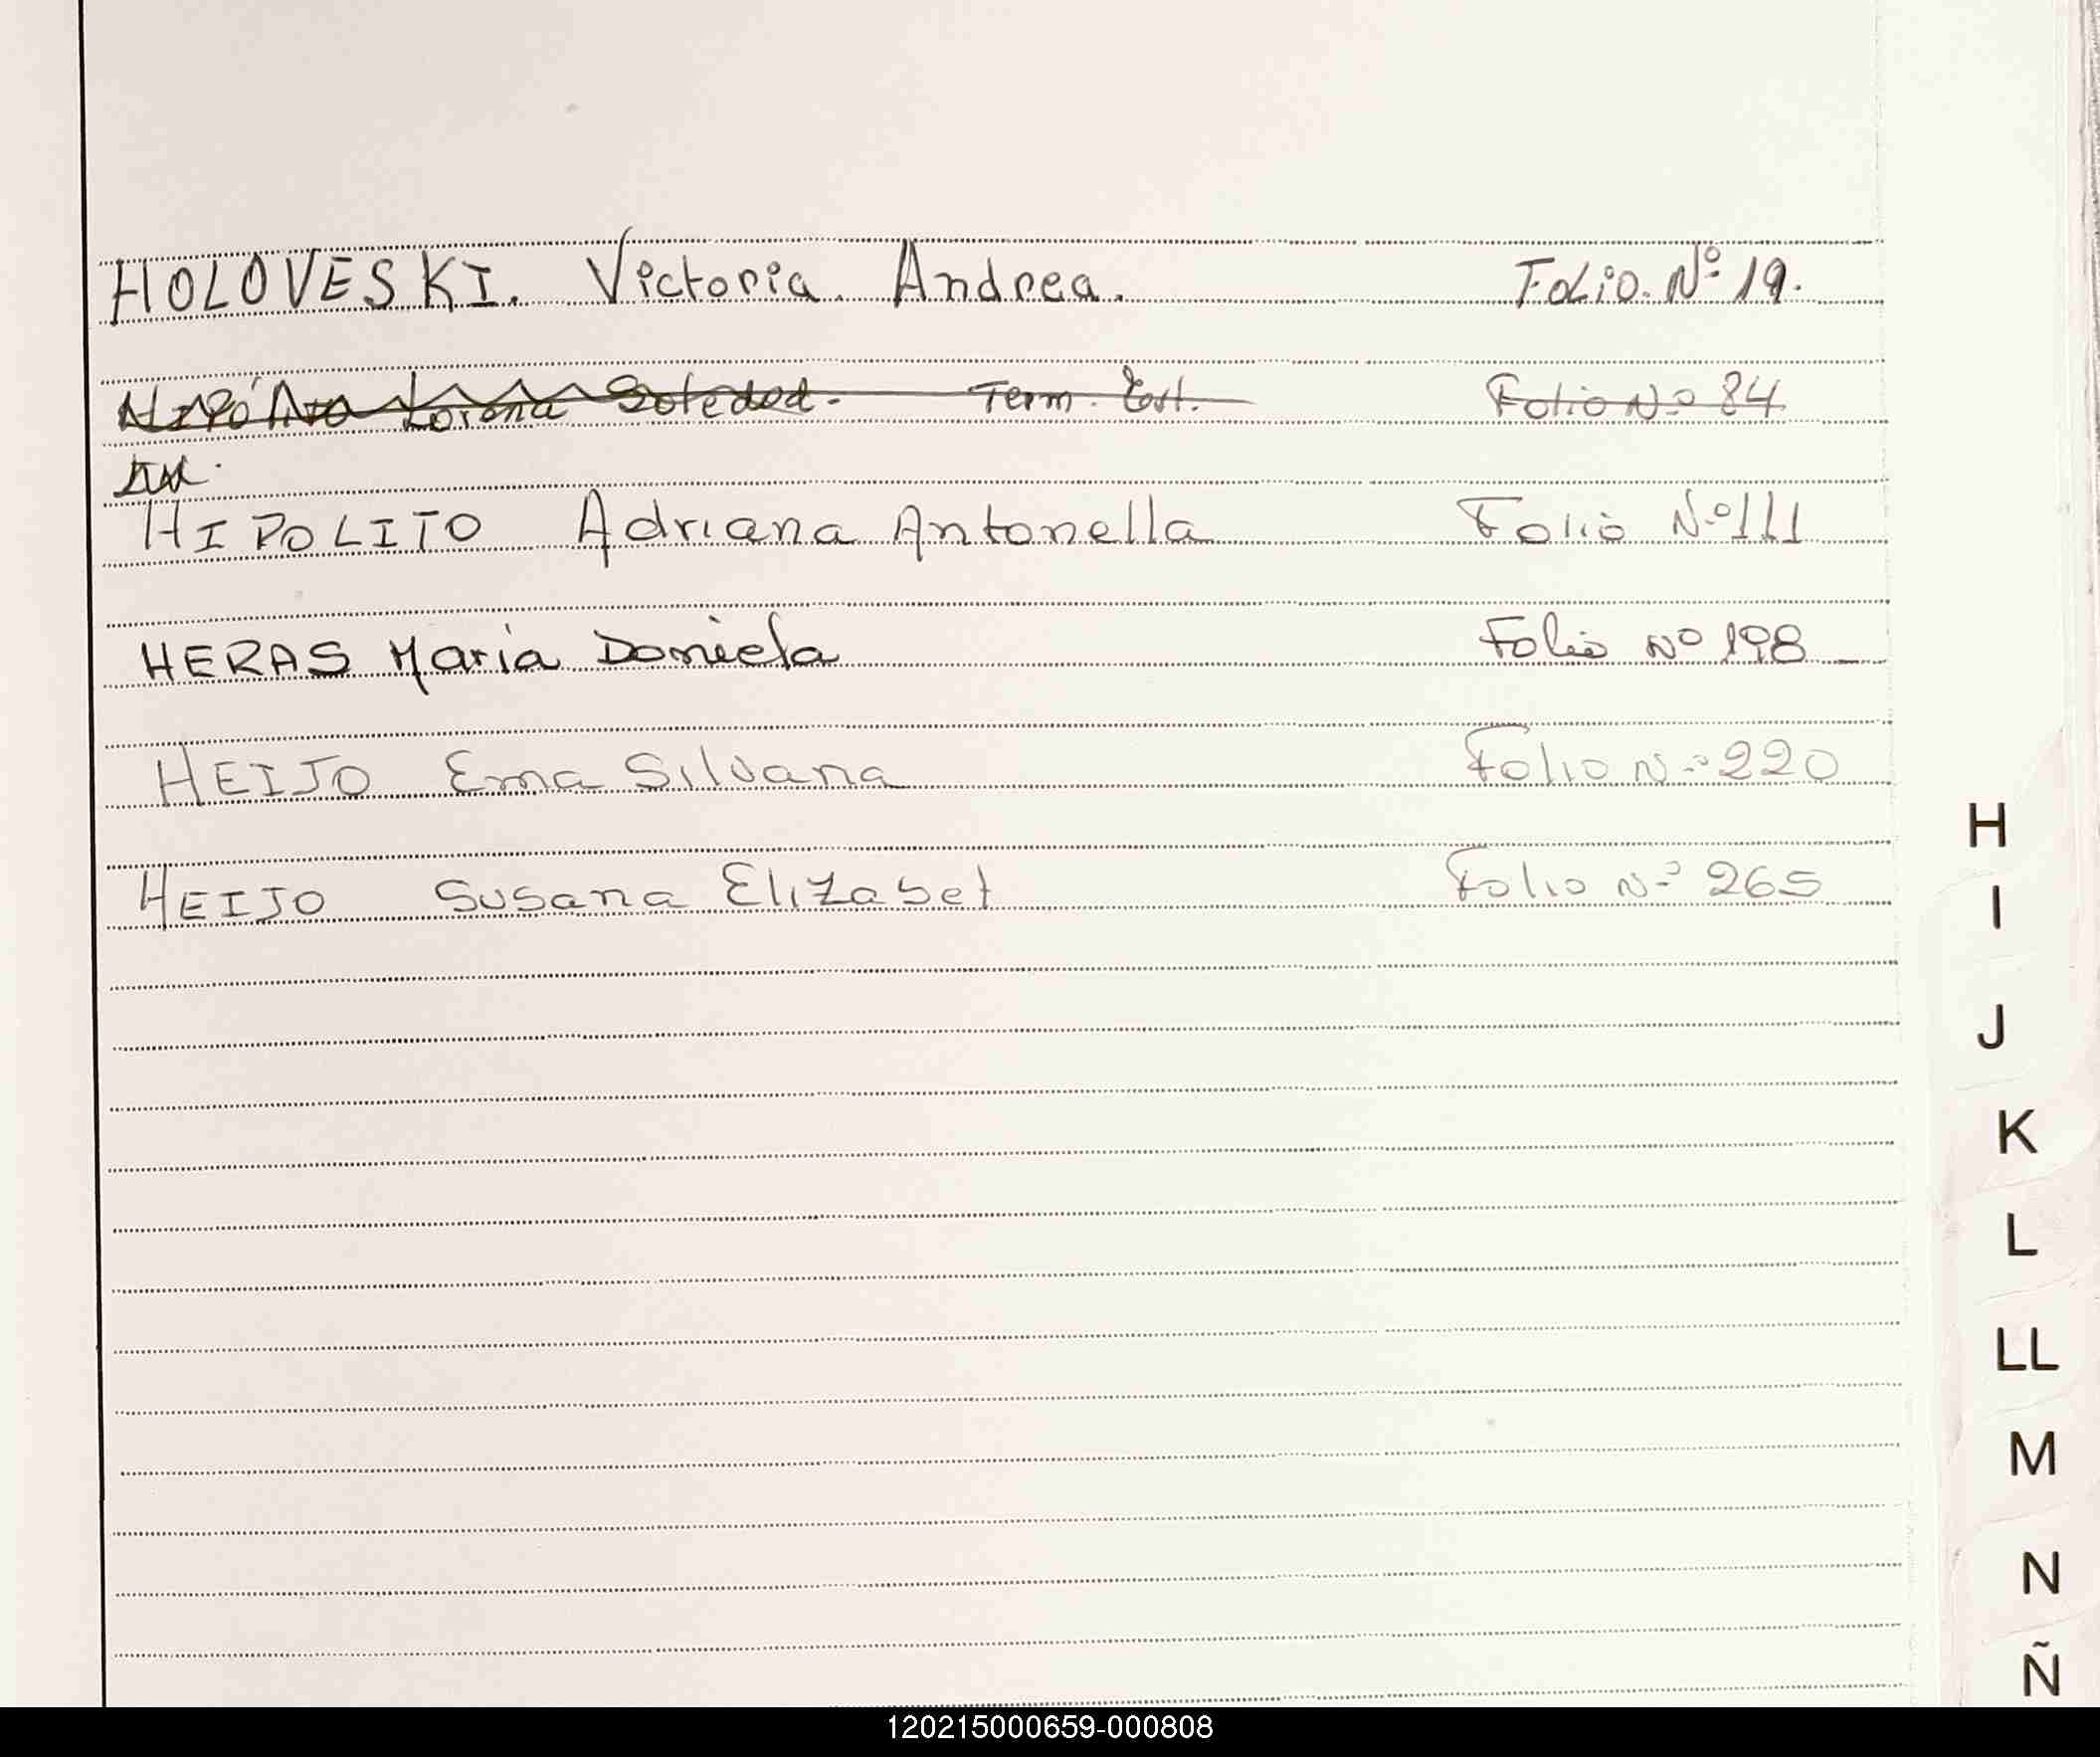 HOLOVESKI. Victoria Andrea. Folio. Nº 19.
Lorena Soledad. Term. Est. Folio Nº 84
HIPOLITO Adriana Antonella Folio Nº 111
HERAS María Daniela Folio Nº 198
HEIJO Ema Silvana Folio Nº 220
HEIJO Susana Elizabet Folio Nº 265
H
I
J
K
L
LL
M
N
Ñ
120215000659-000808